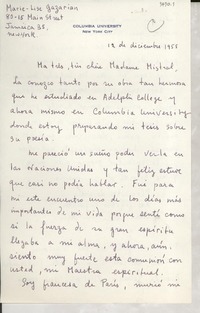 Marie-Lise Gazarian
80-15 Main Street
Jamaica 35.
New York.
C
COLUMBIA UNIVERSITY
NEW YORK CITY
12 de diciembre 1955
Madame Mistral,
La conozco tanto por su obra tan hermosa
que he estudiado en Adelphi College y
ahora mismo en Columbia University
donde estoy preparando mi tesis sobre
su poesía.
Me pareció un sueño poder verla en
las Naciones Unidas y tan feliz estuve
que casi no podía hablar. Fué para
mí este encuentro uno de los días más
importantes de mi vida porque sentí como
si la fuerza de su gran espíritu
llegaba a mi alma, y ahora, aún,
siento muy fuerte esta comunión con
usted, mi Maestra espiritual.
Soy francesa de París, murió mi